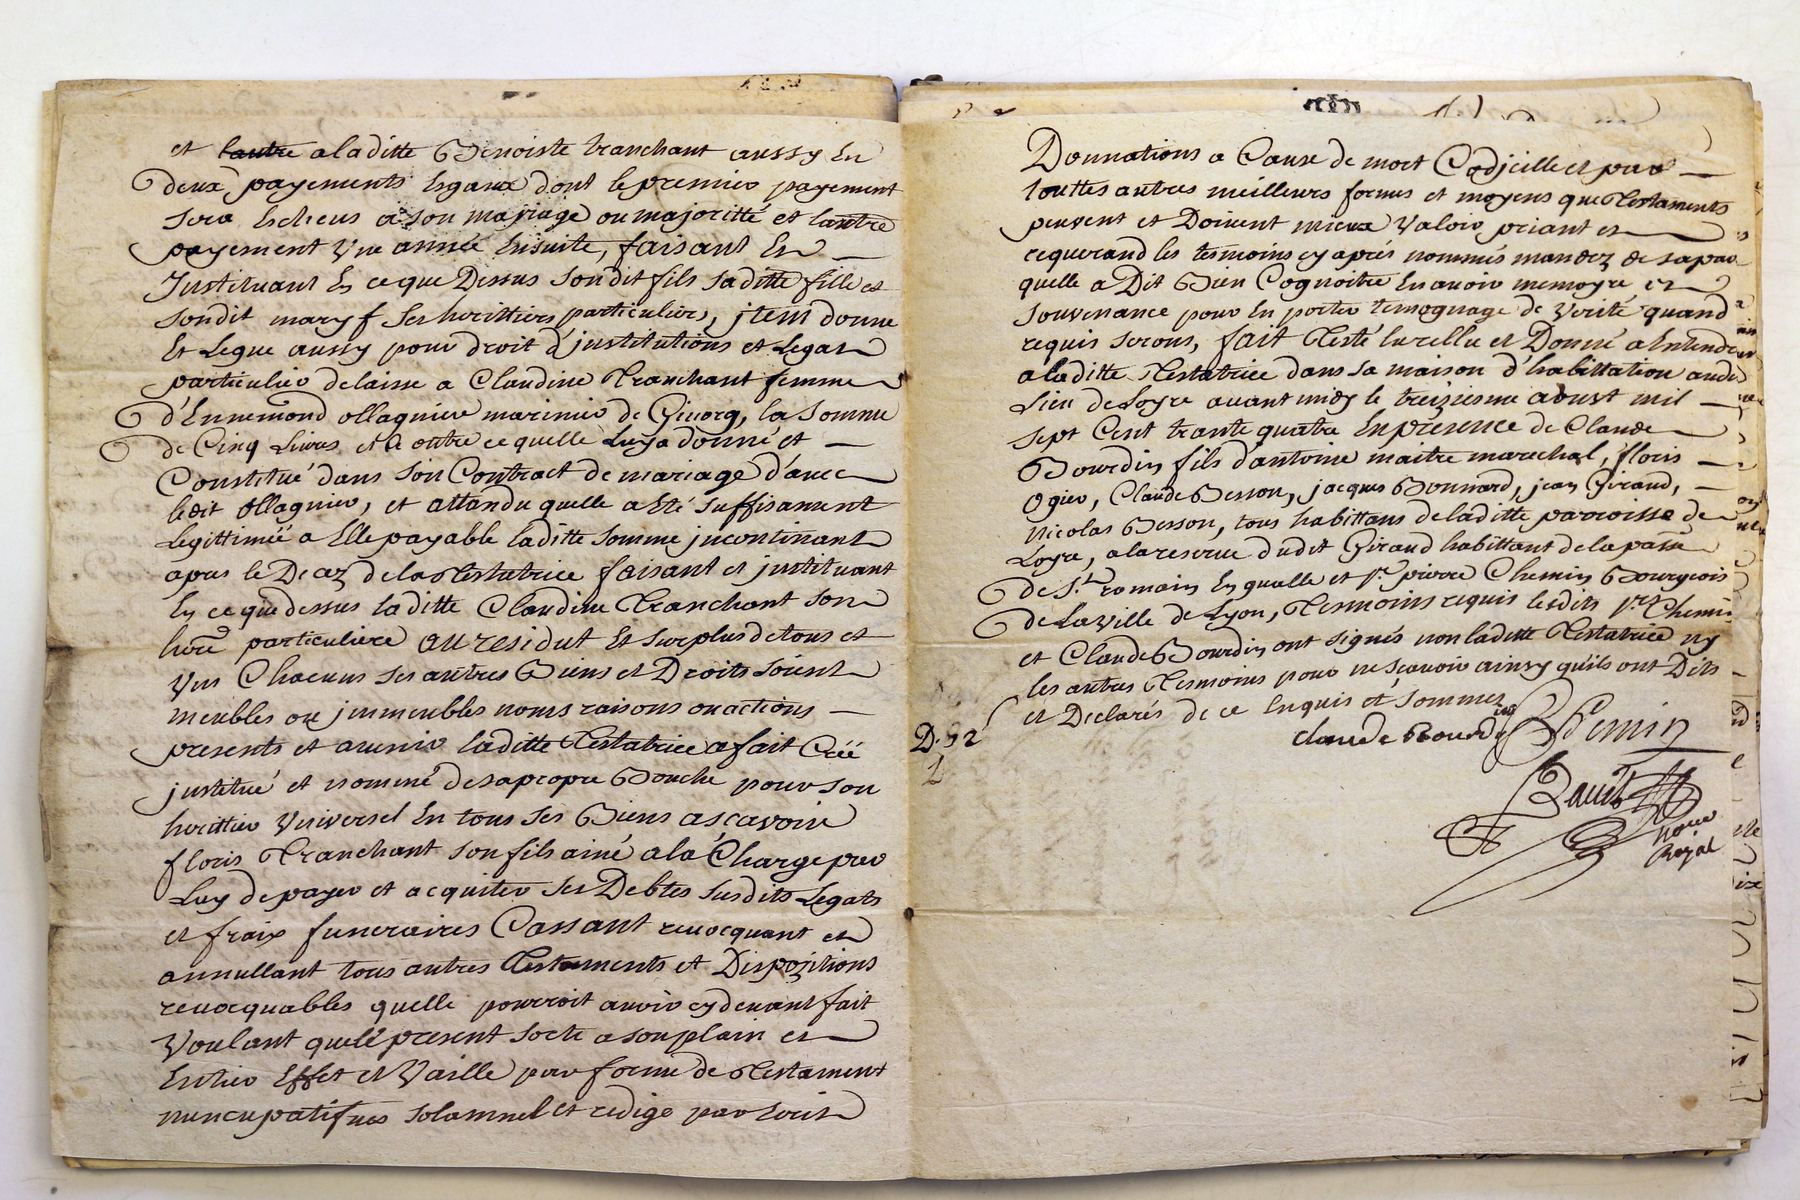 et l'autre a laditte Benoiste tranchant aussy En
deux payements Esgaux dont le premier payement
sera Escheus a son mariage ou majoritté et lautre
payement Une année Ensuite, faisant En
Instituant En ce que Dessus sondit fils saditte fille et
sondit mary f ses herittiers particuliers, jtem donne
Et Legue aussy pour droit d'justitutions et Legat
particulier delaisse a Claudine Tranchant femme
d'Ennemond ollagnier marinier de Givorg, la somme
de Cinq Livres et a outre ce quelle Luy a donné et
Constitué dans son Contract de mariage d'avec
ledit ollagnier, et attandu quelle a Eté suffisament
Legittimée a Elle payable laditte somme jncontinant
apres le Decez de la Testatrice faisant et justituant
En ce que dessus laditte Claudine Tranchant son
here particuliere au residut Et surplus de tous et
Uns Chacuns ses autres Biens et Droits soient
meubles ou jmmeubles noms raisons ou actions
presents et avenir laditte Testatrice a fait Créé
justitué et nommé de sa propre Bouche pour son
herittier Universel En tous ses Biens ascavoir
floris Tranchant son fils ainé a la Charge par
Luy de payer et acquiter ses Debtes susdits Legats
et fraix funeraires Cassant revocquant et
annullant tous autres Testaments et Dispozitions
revocquables quelle pourroit avoir cy devant fait
Voulant que le present sorte a son plain et
Entier Effet et Vaille par forme de Testament
nuncupatif solamnel et redigé par Ecrit
Donnations a Cause de mort Codjcille et par
touttes autres meilleurs formes et moyens que Testaments
peuvent et Doivent mieux Valoir priant et
requerand les tesmoins cy aprés nommés mandez de sa par
quelle a Dit Bien Cognoitre En avoir memoyre et
souvenance pour En porter temognage de verité quand
requis serons, fait Testé lu rellu et Donné a Entendre
a laditte Testatrice dans sa maison d'habittation audit
Lieu de Loyre avant midy le treiziesme aoust mil
sept Cent trante quatre En presence de Claude
Bourdin fils d'antoine maitre marechal, floris
Ogier, Claude Besson, jacques Bonnard, jean Giraud,
Nicolas Besson, tous habittans de laditte parroisse de
Loyre, a la reserve dudit Giraud habittant de la passe
de St romain En gualle et Sr pierre Chemin Bourgeois
de la Ville de Lyon, Tesmoins requis lesdits Srs Chemin
et Claude Bourdin ont signés non laditte Testatrice ny
les autres Tesmoins pour ne scavoir ainsy qu'ils ont Dits
et Declarés de ce Enquis et sommez
D. 92
claude Bourdin Chemin
notre
Royal